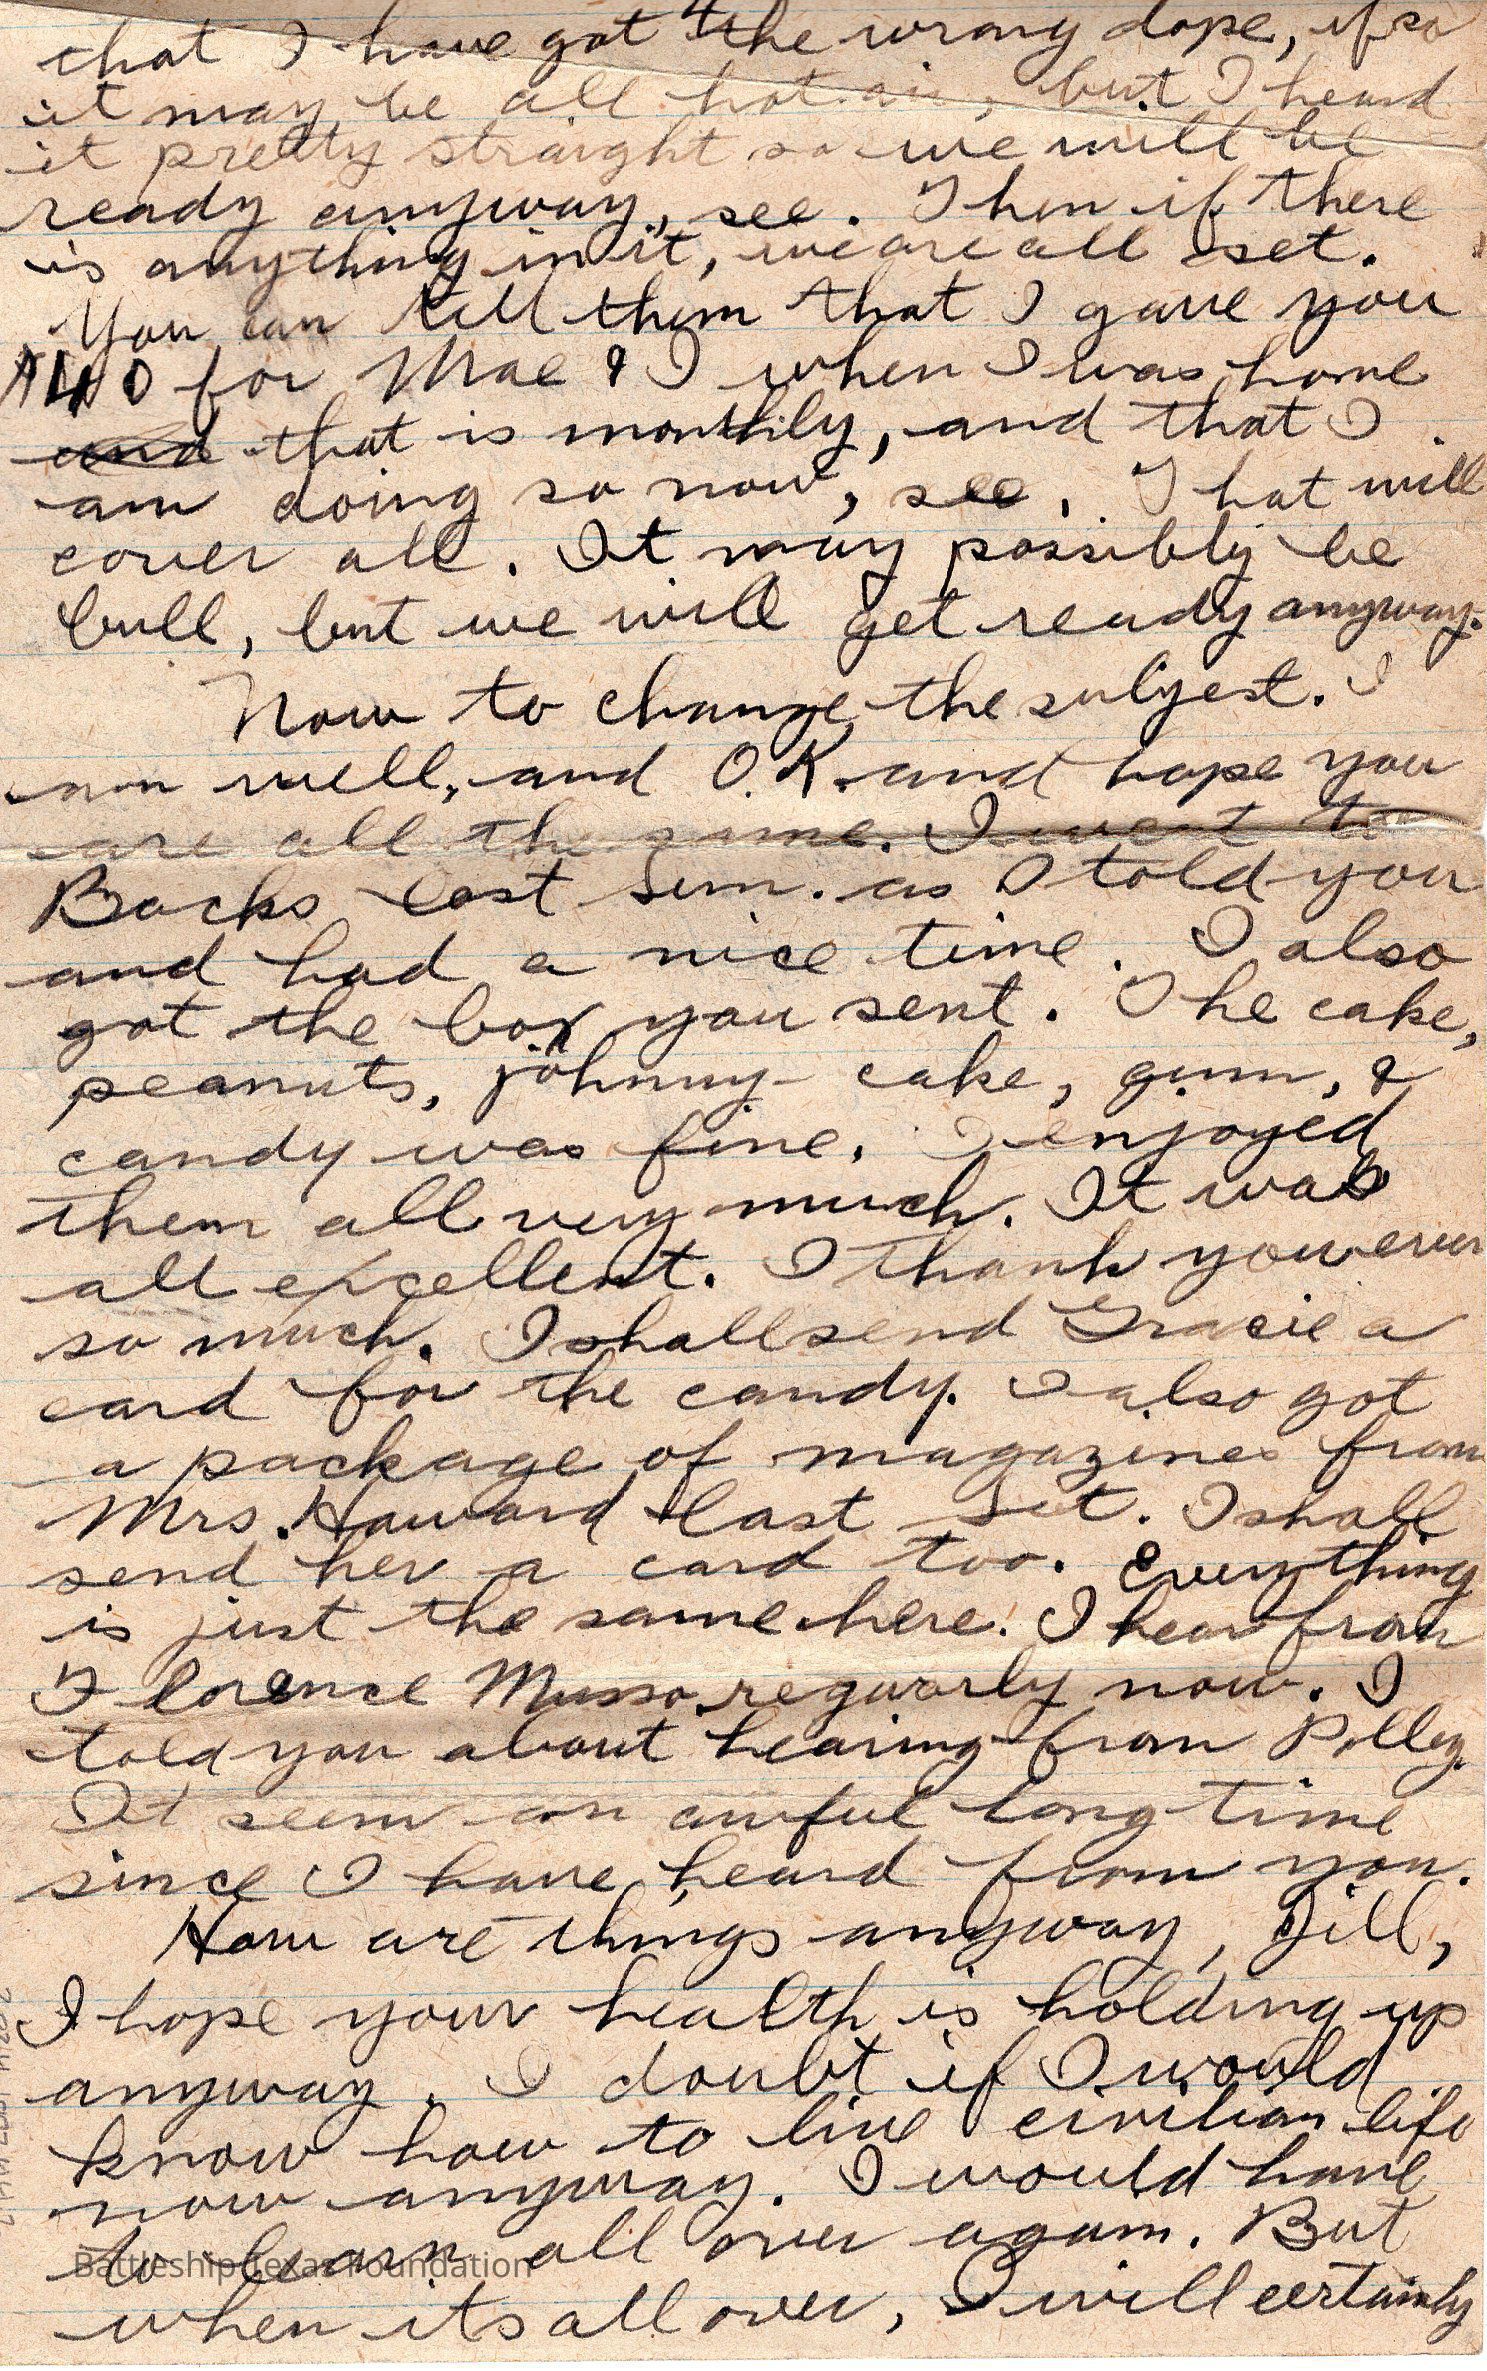 that I have got the wrong dope, if so
it may be all hot air, but I heard
it pretty straight so we will be
ready anyway, see. Then if there
is anything in it, we are all set.
You can tell them that I gave you
for Mae & I when I was home
and that is monthly, and that I
am doing so now, see. That will
cover all. It may possibly be
bull, but we will get ready anyway.
Now to change the subjest. I
am well, and O.K. and hope you
are all the same. I went to
Bocks last Sun. as I told you
and had a nice time. I also
got the box you sent. The cake,
peanuts, johnny-cake, gum, &
candy was fine. I enjoyed
them all very much. It was
all excellent. I thank you ever
so much. I shall send Gracie a
card for the candy. I also got
a package of magazines from
Mrs. Howard last Sat. I shall
send her a card too. Everything
is just the same here. I hear from
Florence Musso regurarly now. I
told you about hearing from Polley.
It seem an awful long time
since I have heard from you.
How are things anyway, Jill,
I hope your health is holding up
anyway. I doubt if I would
know how to live civilian life
now anyway. I would have
to learn all over again. But
when its all over, I will certainly
Battleship Texas Foundation